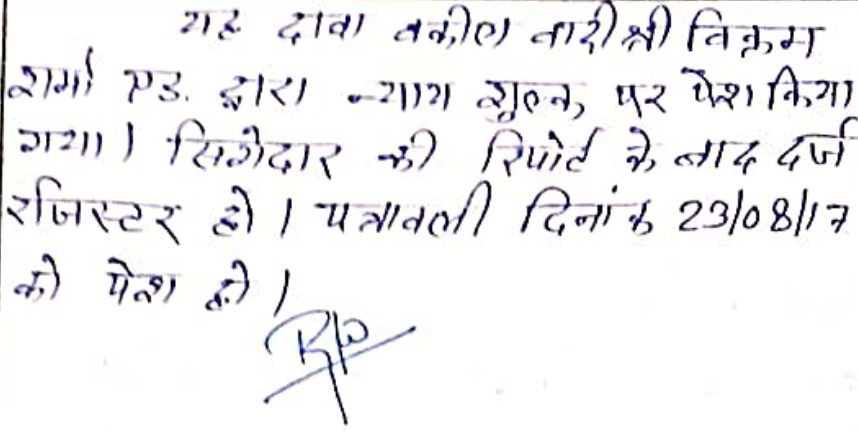 यह दावा वकील वादी श्री विक्रम
शर्मा एड. द्वारा न्याय शुल्क पर पेश किया
गया। सिगेदार की रिपोर्ट के बाद दर्ज
रजिस्टर हो। पत्रावली दिनांक 23/08/17
को पेश हो।